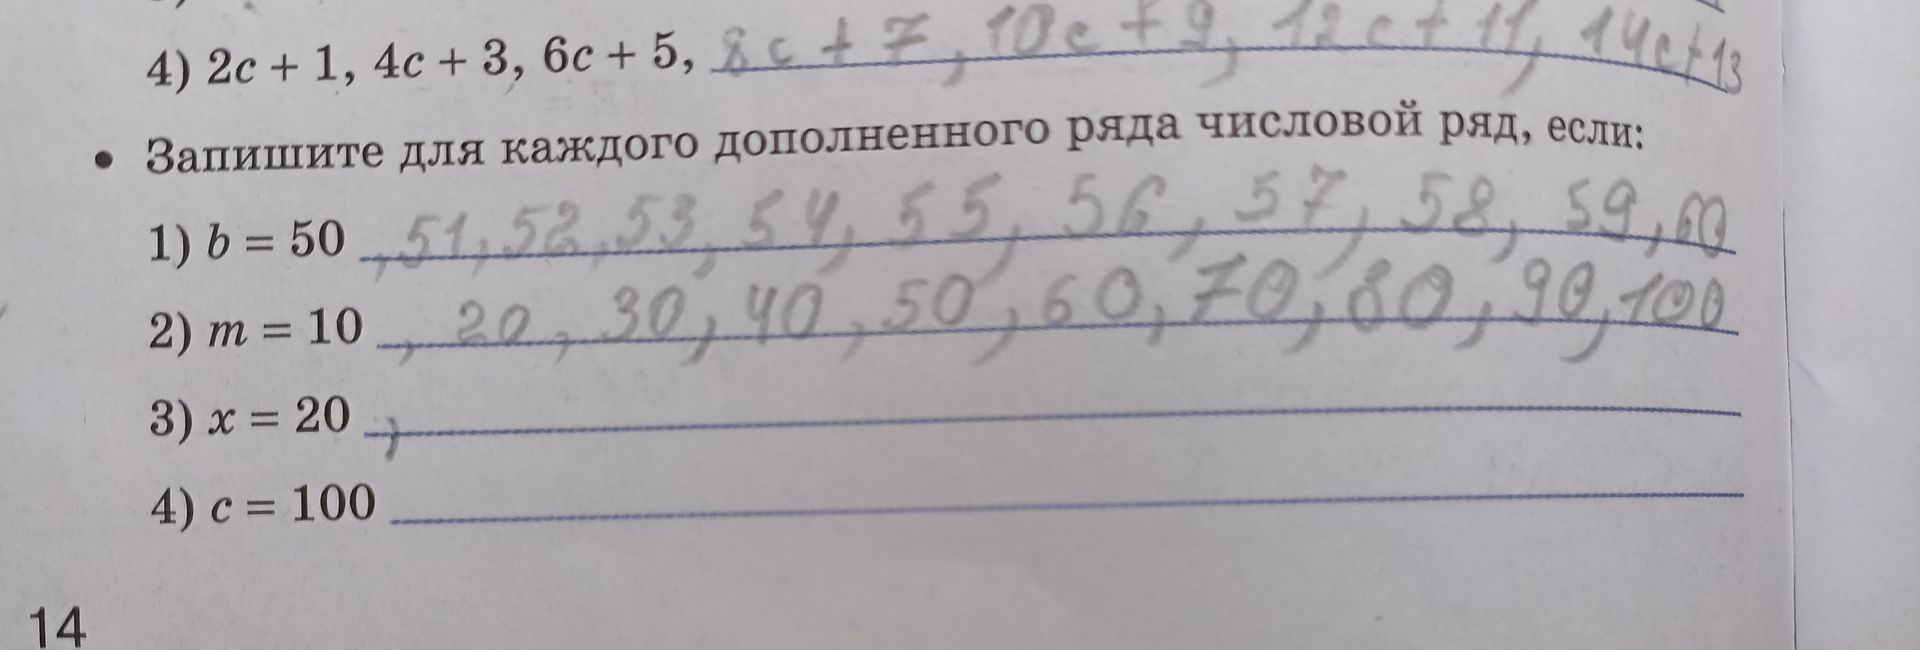 4) 2c + 1, 4c + 3, 6c + 5, 8c + 7, 10c + 9, 12c + 11, 14c + 13
• Запишите для каждого дополненного ряда числовой ряд, если:
1) b = 50, 51, 52, 53, 54, 55, 56, 57, 58, 59, 60
2) m = 10, 20, 30, 40, 50, 60, 70, 80, 90, 100
3) x = 20,
4) c = 100
14